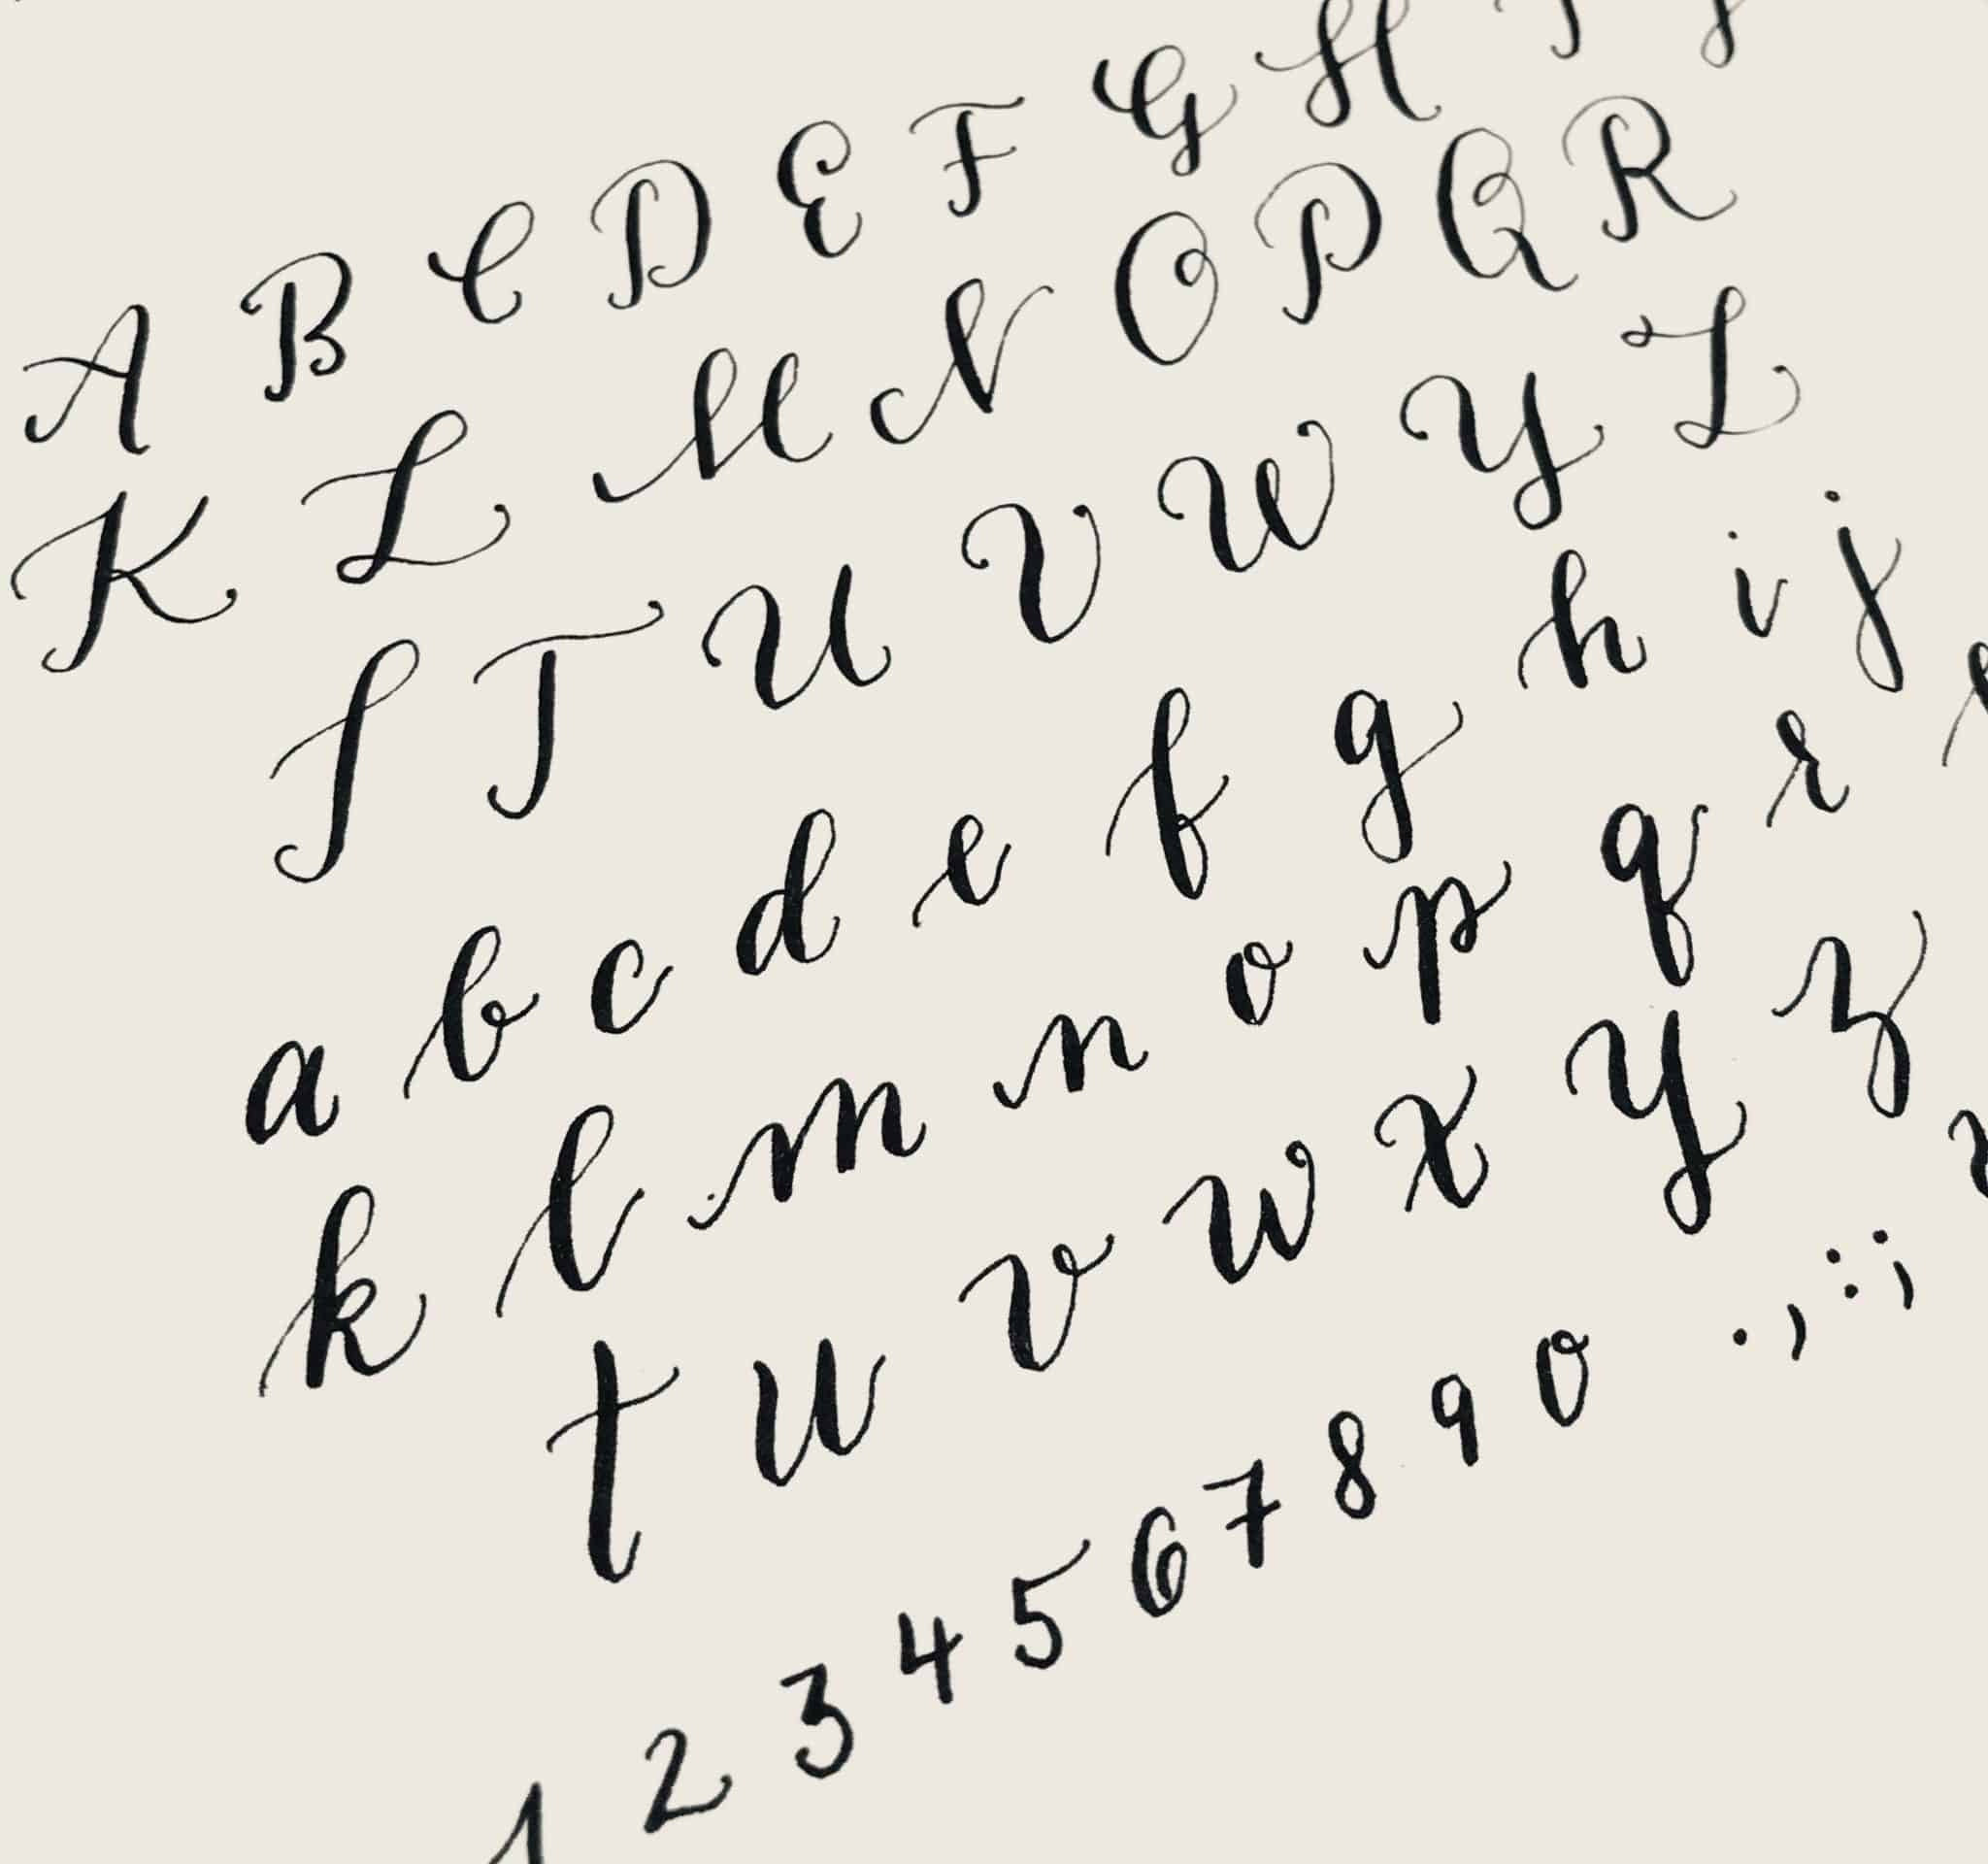 A B C D E F G H I J
K L M N O P Q R
S T U V W Y Z
a b c d e f g h i j
k l m n o p q r
t u v w x y z
1 2 3 4 5 6 7 8 9 0 . , : ;